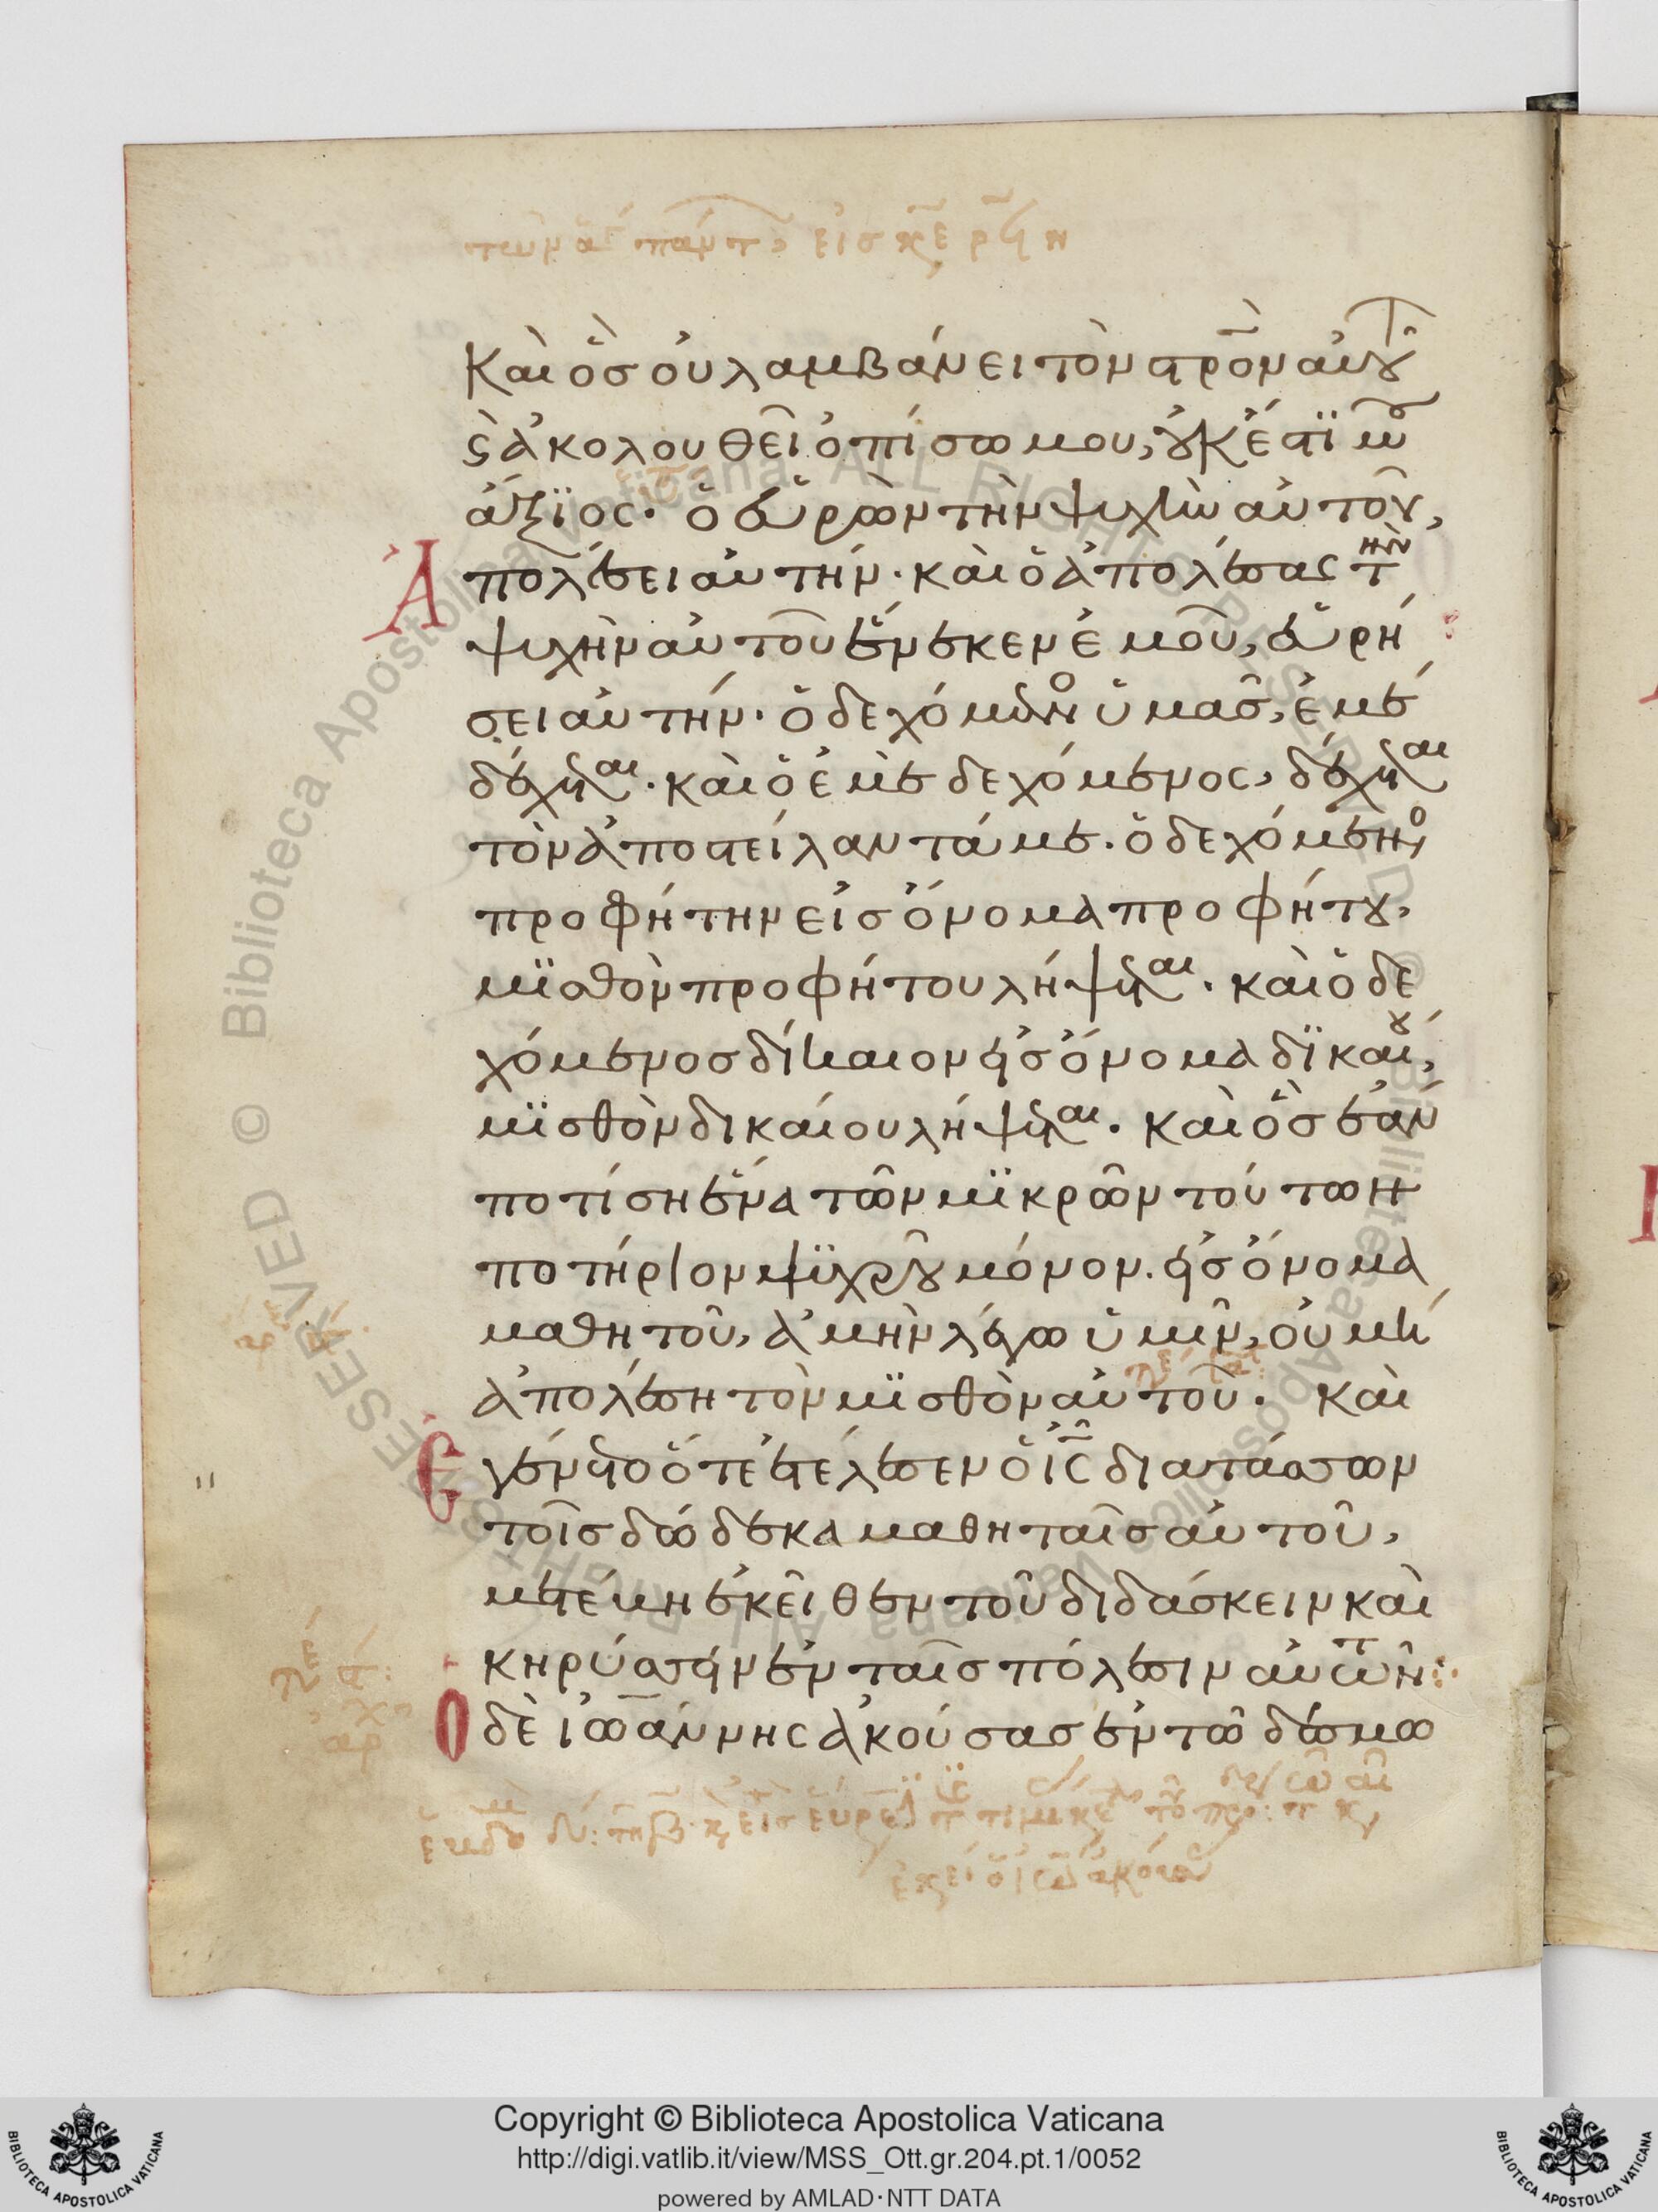 Καὶ ὃσ οὐ λαμβάνει τὸν στρο̅ν αὐτοῦ
ϛ ἀκολουθεῖ ὀπίσω μου, οὐκ ἔστϊ μου
ἄξϊος· ὁ εὑρὼν τὴν ψυχὴν αὐτοῦ,
Ἀπολέσει αὐτήν· καὶ ὁ ἀπολέσας τὴν
ψυχὴν αὐτοῦ ἕνεκεν ἐμοῦ, εὑρή
σει αὐτήν· ὁ δεχόμενος ὑμᾶσ, ἐμὲ
δέχεται· καὶ ὁ ἐμὲ δεχόμενος, δέχεται
τὸν ἀποστείλαντά με· ὁ δεχόμενος
προφήτην εἰσ ὄνομα προφήτου,
μϊσθὸν προφήτου λήψεται· καὶ ὁ δε
χόμενοσ δίκαιον εἰσ ὄνομα δϊκαίου,
μϊσθὸν δικαίου λήψεται· καὶ ὃσ ἐὰν
ποτίση ἕνα τῶν μϊκρῶν τούτων
ποτήριον ψϋχροῦ μόνον· εἰσ ὄνομα
μαθητοῦ, ἀμὴν λέγω ὑμῖν, οὐ μὴ
ἀπολέση τὸν μϊσθὸν αὐτοῦ· Καὶ
Ἐγένετο ὅτε ἐτέλεσεν ὁ ι̅ς̅ διατάσσων
τοῖσ δώδεκα μαθηταῖσ αὐτοῦ,
μετέβη ἐκεῖθεν τοῦ διδάσκειν καὶ
κηρύσσειν ἐν ταῖσ πόλεσιν αὐτῶν:
Ὁ δὲ ἰωάννης ἀκούσασ ἐν τῶ δεσμω
Copyright © Biblioteca Apostolica Vaticana
http://digi.vatlib.it/view/MSS_Ott.gr.204.pt.1/0052
powered by AMLAD·NTT DATA
BIBLIOTECA APOSTOLICA VATICANA
BIBLIOTECA APOSTOLICA VATICANA